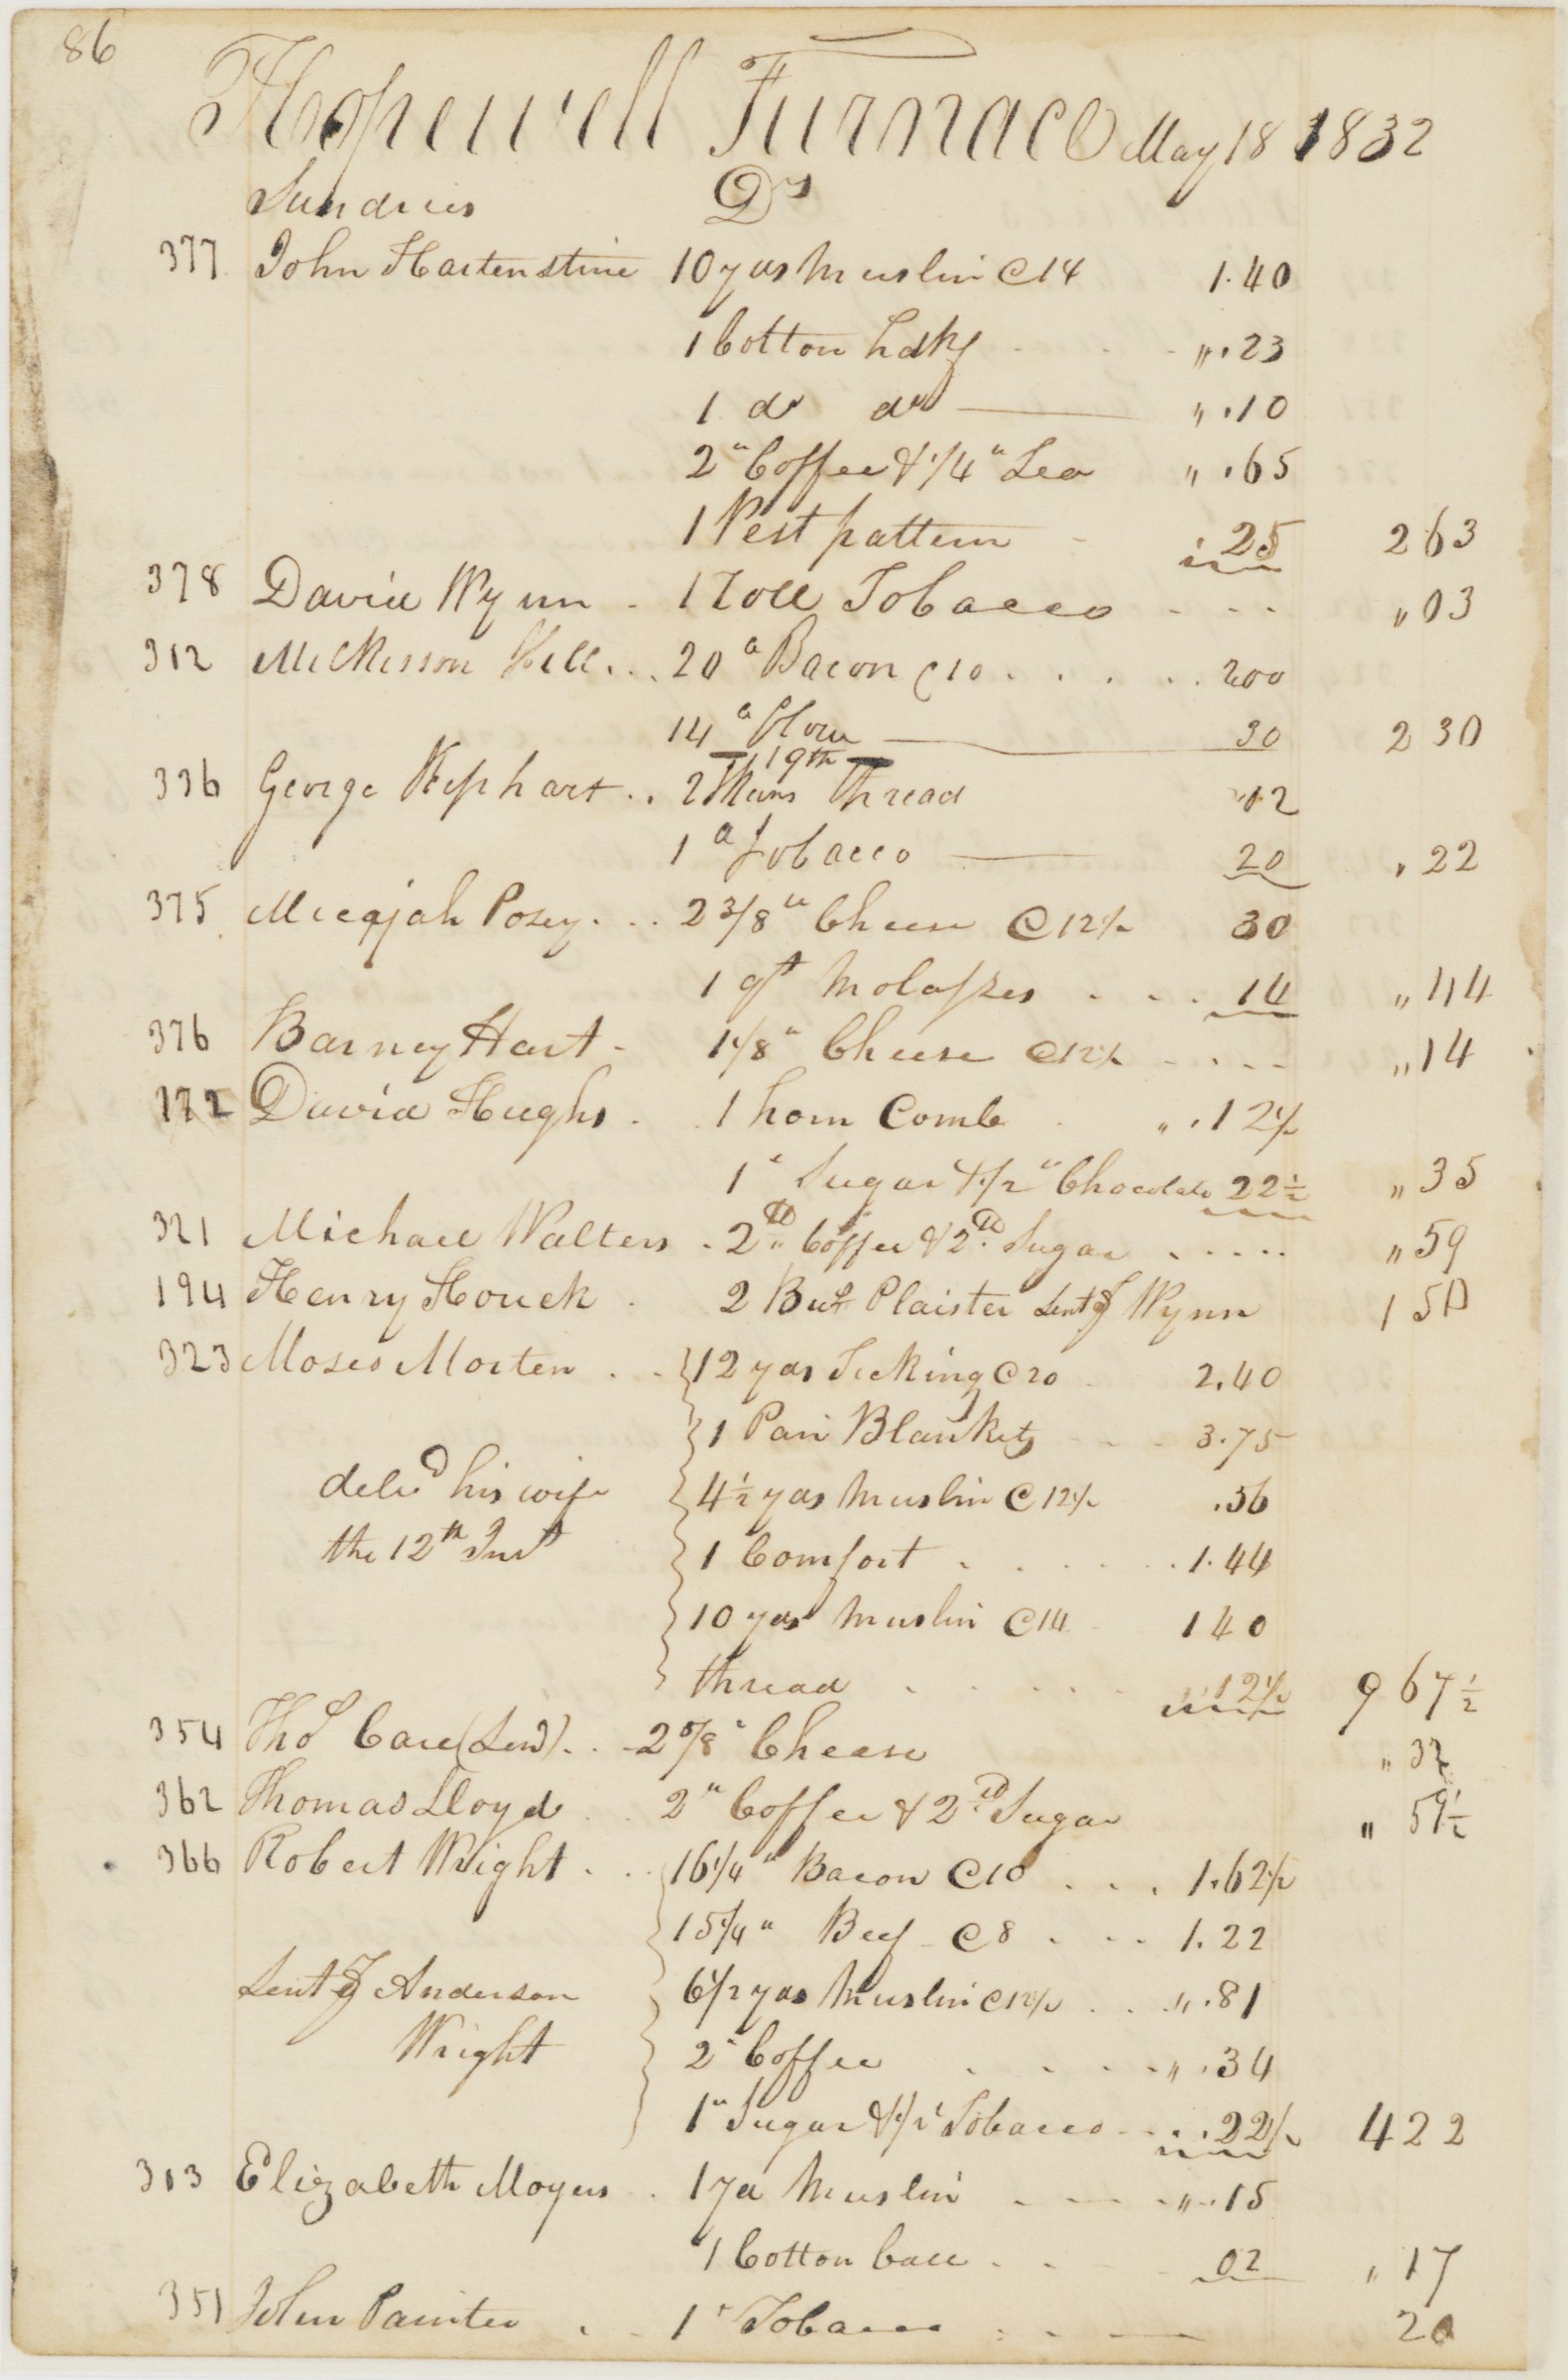 86
Hopewell Furnace May 18 1832
Sundries Drs
377 John Hartenstine 10 yds Muslin @ 14 1.40
1 Cotton hdkf - - - " . 23
1 do do — " . 10
2 " Coffee & 1/4 " Tea " . 65
1 Vest pattern - . 25 2 63
378 David Wynn - 1 Roll Tobacco - - - " 03
312 McKesson Hill . . . 20 " Bacon @ 10 . . . . . 200
14 " flour — 30 2 30
— 19th —
336 George Kephart . . 2 Skeins Thread " 12
1 " Tobacco — 20 " 22
375 Micajah Posey . . . 2 3/8 " Cheese @ 12 1/2 30
1 qt Molasses . - . . 14 " 44
376 Barney Hart - 1 1/8 " Cheese @ 12 1/2 - . - - " 14
172 David Hughs . 1 horn Comb " . 12 1/2
1 " Sugar & 1/2 " Chocolate 22 1/2 " 35
321 Michael Walters . 2 lb " Coffee & 2 lb Sugar . . . . . " 59
194 Henry Houck . 2 Bus Plaister Sent J Wynn 1 50
323 Moses Morten . . 12 yds Ticking @ 20 2.40
1 Pair Blankets - - 3.75
deld his wife 4 1/2 yds Muslin @ 12 1/2 .56
the 12th Inst 1 Comfort . . . . . . 1.44
10 yds Muslin @ 14 1 40
thread . . . . . " 12 1/2 9 67 1/2
354 Thos Care . . 2 5/8 " Cheese " 32
362 Thomas Lloyd . . 2 " Coffee & 2 lb Sugar " 59 1/2
366 Robert Wright . . 16 1/4 " Bacon @ 10 . . . 1.62 1/2
15 1/4 " Beef - @ 8 . - - 1.22
Sent J Anderson 6 1/2 yds Muslin @ 12 1/2 . . . " . 81
Wright 2 " Coffee . . . - " . 34
1 " Sugar & 1/2 " Tobacco - . . 22 1/2 4 22
313 Elizabeth Moyers . 1 yd Muslin . - - - " . 15
1 Cotton ball . - 02 " 17
351 John Painter . - 1 " Tobacco : - — 20